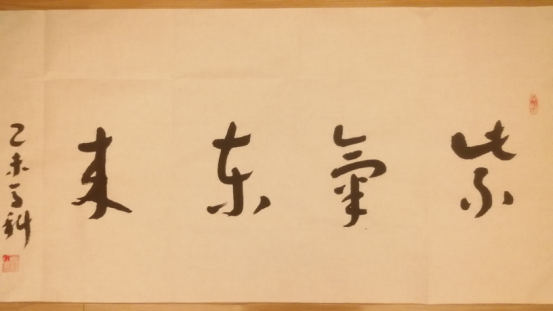 紫氣东来
乙未